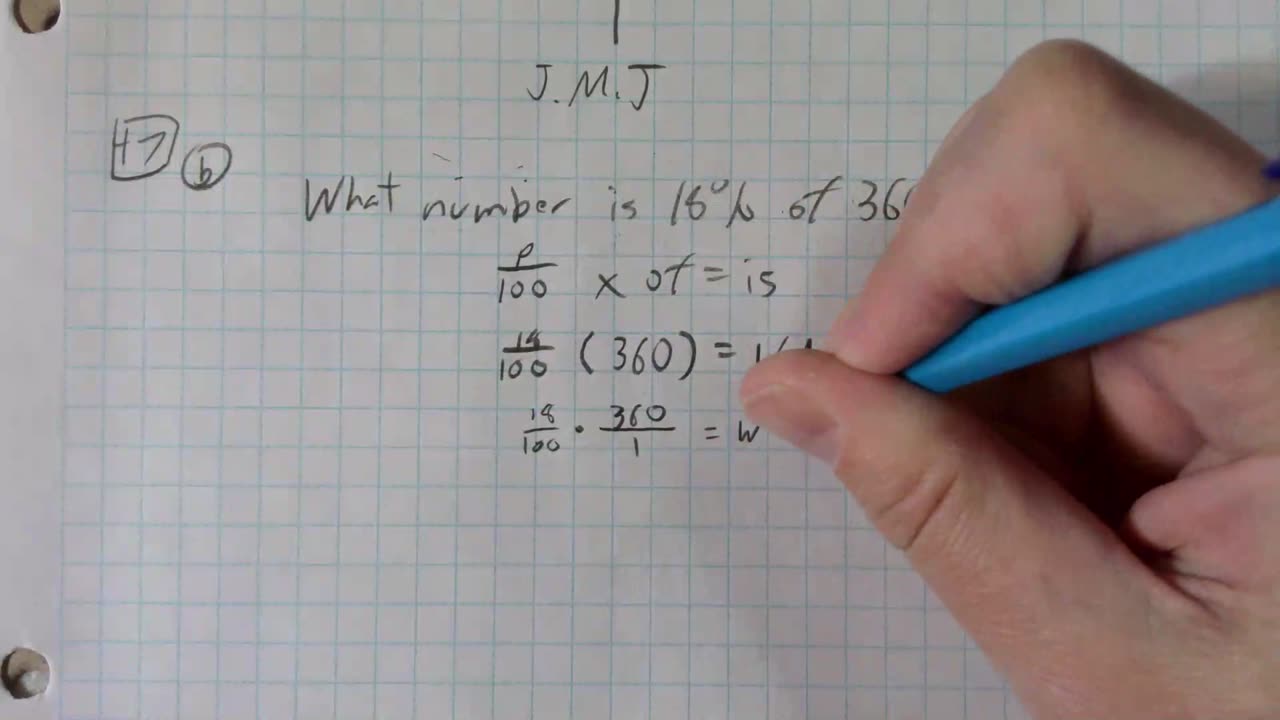 J.M.J
47 b What number is 18% of 36
P/100 x of = is
18/100 (360) =
18/100 · 360/1 = W